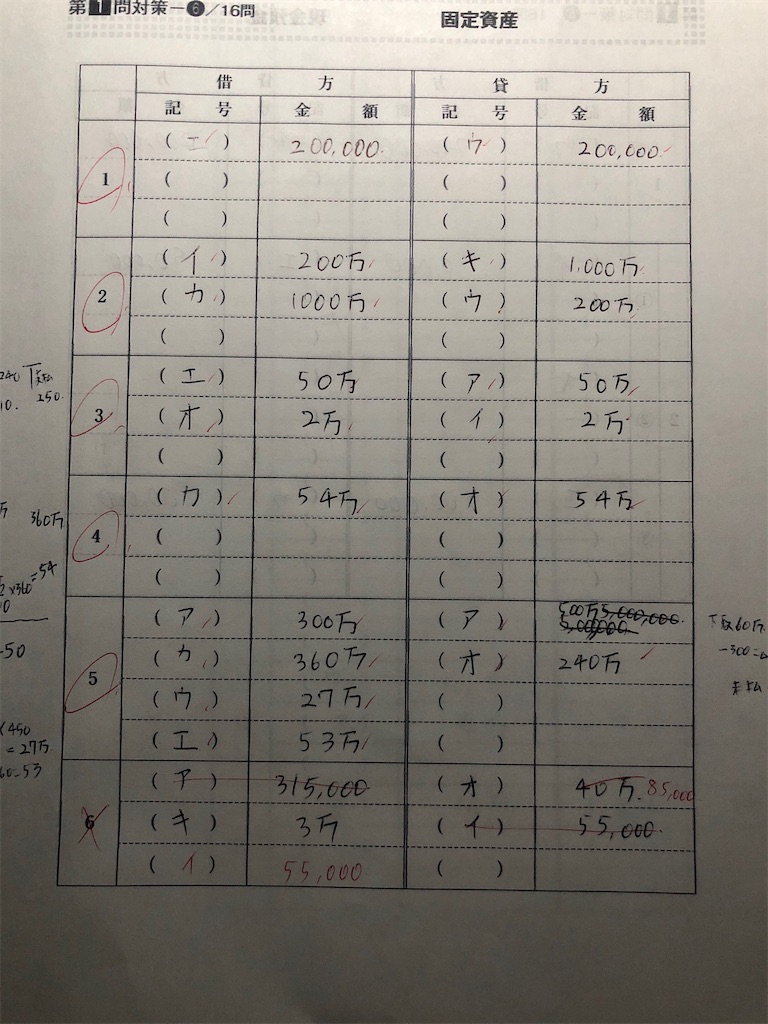 第1問対策－❻／16問
固定資産
借 方 貸 方
記 号 金 額 記 号 金 額
1 (エ) 200,000 (ウ) 200,000
( ) ( )
( ) ( )
2 (イ) 200万 (キ) 1,000万
(カ) 1000万 (ウ) 200万
( ) ( )
3 (エ) 50万 (ア) 50万
(オ) 2万 (イ) 2万
( ) ( )
4 (カ) 54万 (オ) 54万
( ) ( )
( ) ( )
5 (ア) 300万 (ア) 500万 5,000,000
(カ) 360万 (オ) 240万
(ウ) 27万 ( )
(エ) 53万 ( )
6 (ア) 315,000 (オ) 40万 85,000
(キ) 3万 (イ) 55,000
(イ) 55,000 ( )
240
250
10.
360万
×360=54
-50
450
=27万
60=53
下取60万
-300=